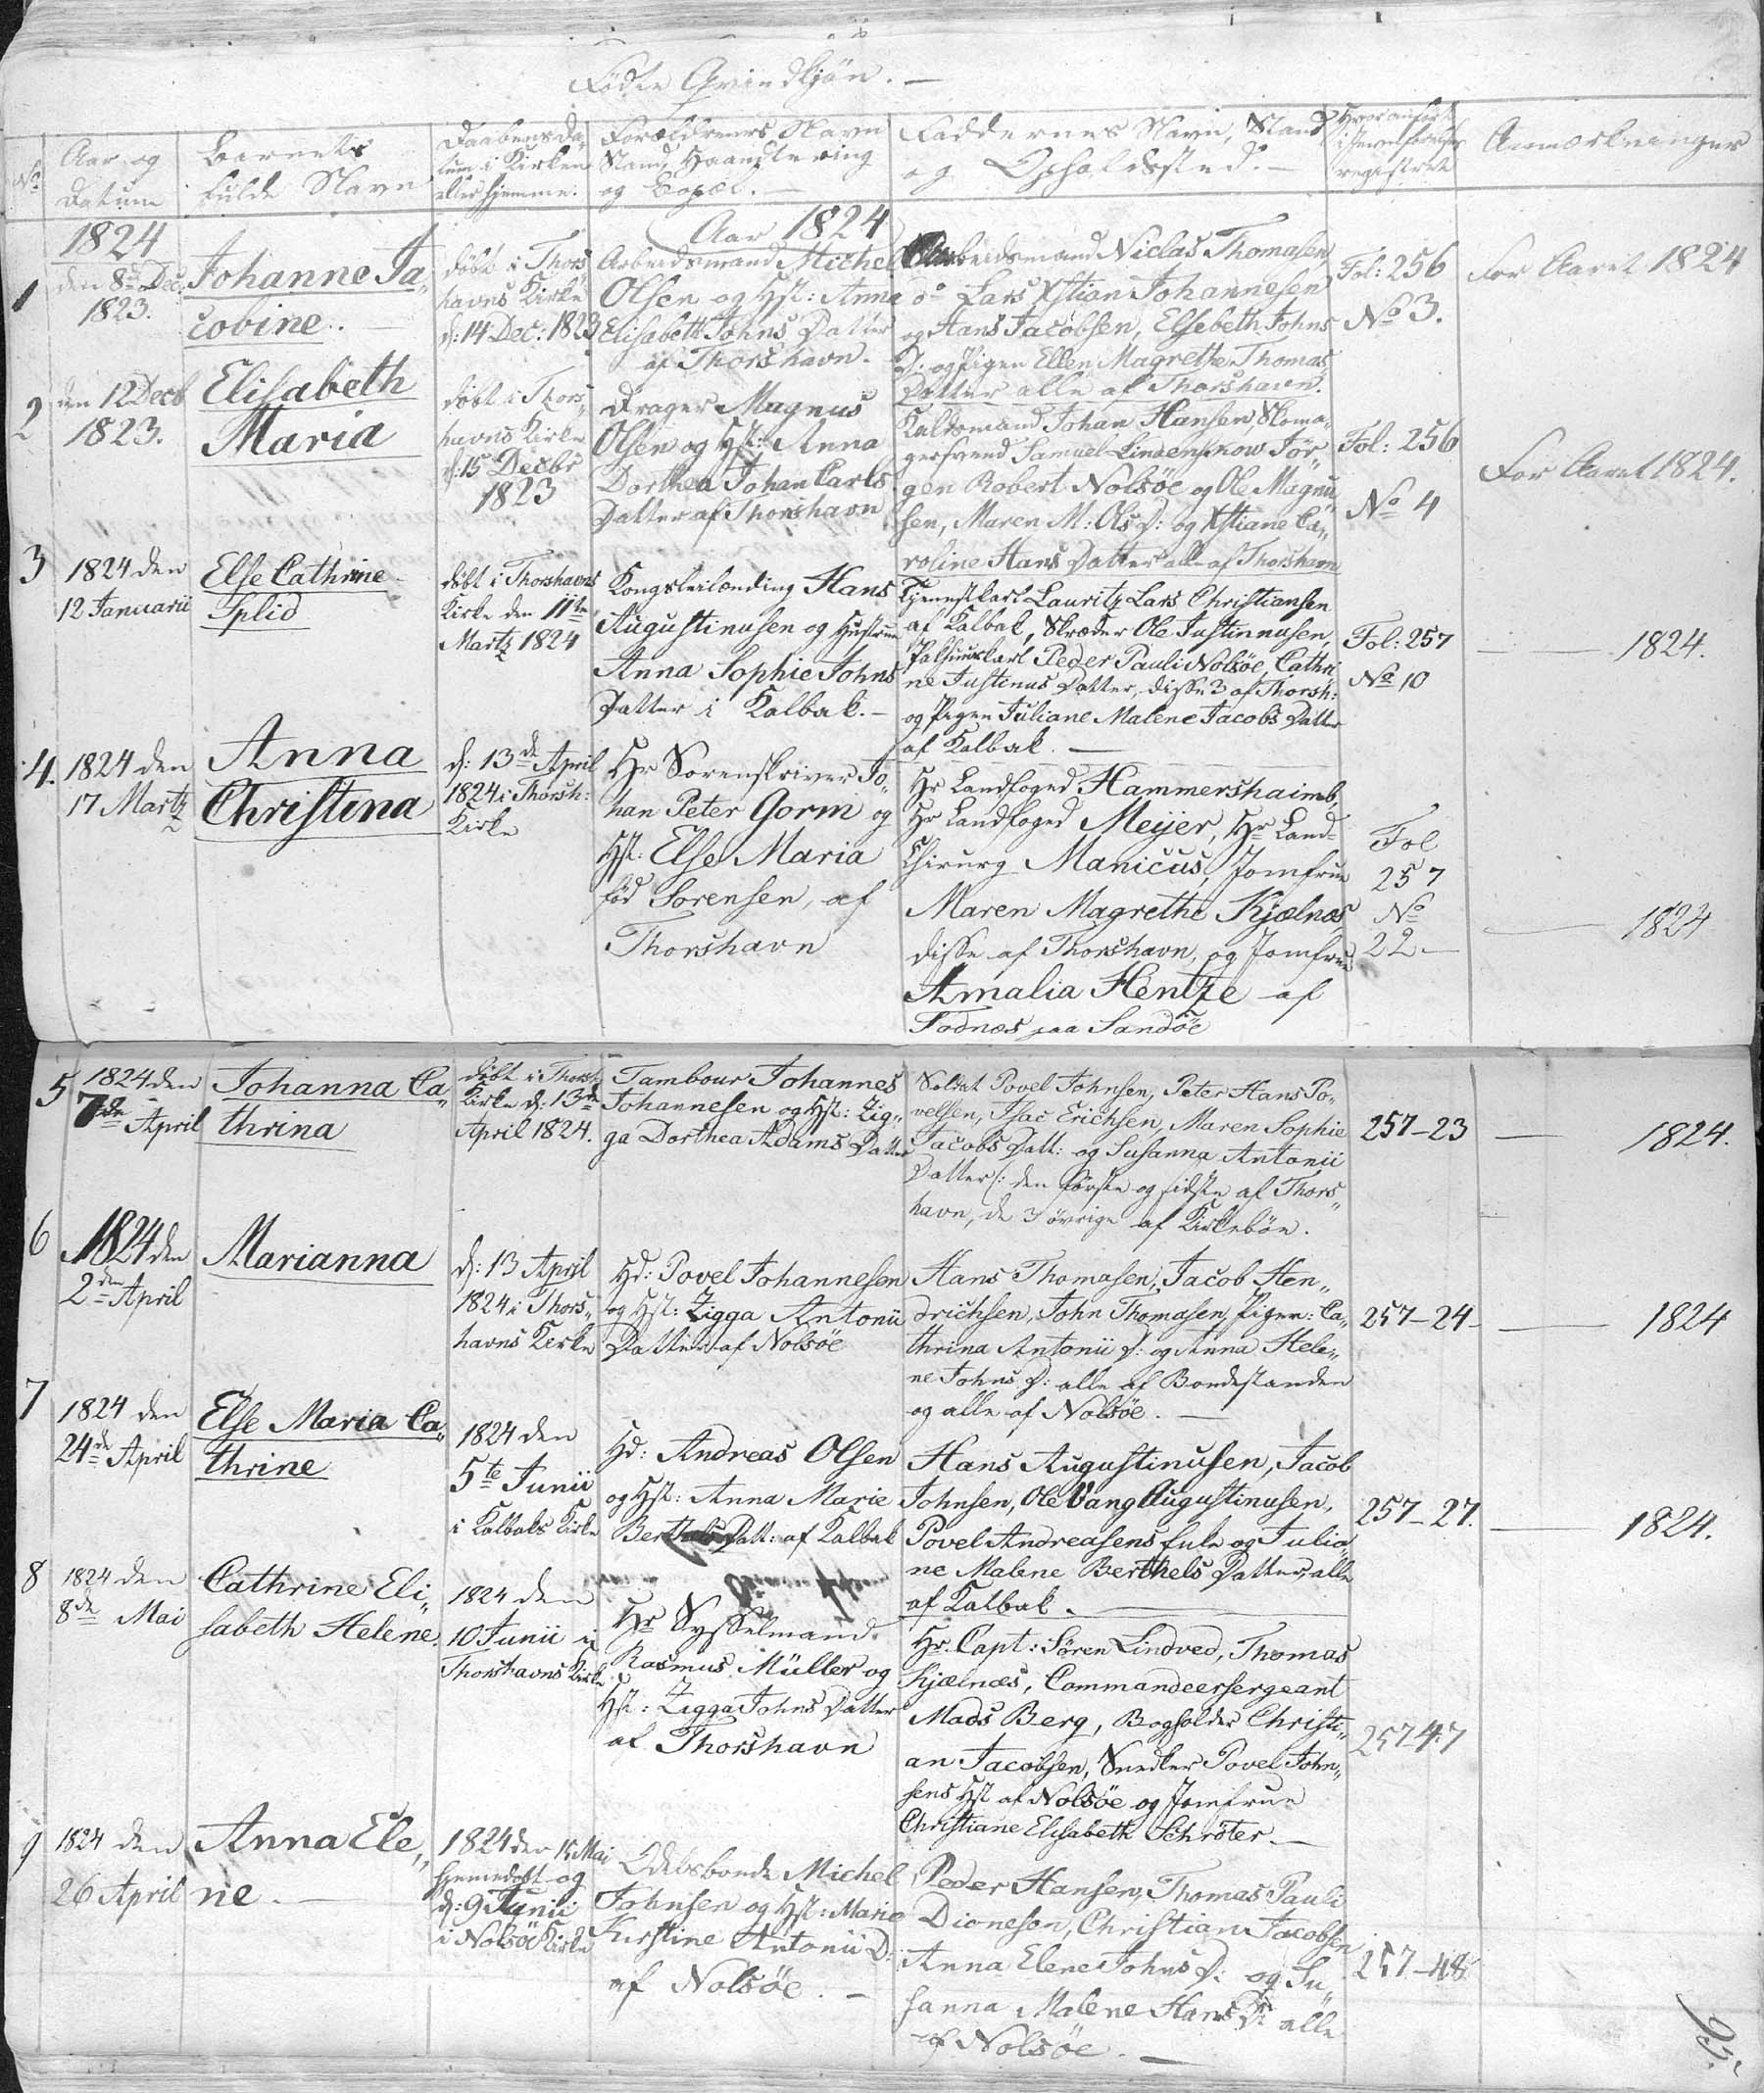 Födte Qvindkjön. —
No
Aar og
Datum
Barnets
fulde Navn
Daabens Da„
tum i Kirken
eller hjemme.
Forældrenes Navn
Stand, Haandtering
og Bopæl. —
Faddernes Navn, Stand
og Opholdssted. —
Hvor anført
i Jevnførelses
registret
Anmærkninger
Aar 1824
1
1824
den 8de Dec.
1823.
Johanne Ja„
cobine. —
döbt i Thors
havns Kirke
d: 14 Dec: 1823
Arbeidsmand Michel
Olsen og Hst: Anna
Elisabeth Johns Datter
af Thorshavn.
Arbeidsmand Niclas Thomasen
do Lars Xstian Johannesen
og Hans Jacobsen, Elsebeth Johns
D: og Pigen Ellen Magrethe Thomas
Datter alle af Thorshavn.
Fol: 256
No 3.
For Aaret 1824
2
den 12 Decb
1823.
Elisabeth
Maria
döbt i Thors„
havns Kirke
d: 15 Decbr
1823
Drager Magnus
Olsen og Hst: Anna
Dorthea Johan Carls
Datter af Thorshavn
Kaldsmand Johan Hansen Skoma„
gersvend Samuel Lindenskow Jör„
gen Robert Nolsöe og Ole Magnu„
sen, Maren M: Ols D: og Xstiane Ca„
roline Hans Datter alle af Thorshavn
Fol: 256
No 4
For Aaret 1824.
3
1824 den
12 Januarii
Else Cathrine
Splid
döbt i Thorshavns
Kirke den 11te
Martz 1824
Kongsleilænding Hans
Augustinusen og Hustrue
Anna Sophie Johns
Datter i Kalbak. —
Tjenestkarl Lauritz Lars Christiansen
af Kalbak, Skræder Ole Justinnusen,
Pakhuuskarl Peder Pauli Nolsöe, Cathri
ne Justinus Datter, disse 3 af Thorsh:
og Pigen Juliane Malene Jacobs Datter
af Kalbak. —
Fol: 257
No 10
— — 1824.
4.
1824 den
17 Martz
Anna
Christina
d: 13de April
1824 i Thorsh:
Kirke
Hr Sorenskriver Jo„
han Peter Gorm og
Hst: Else Maria
föd Sorensen, af
Thorshavn
Hr Landfoged Hammershaimb,
Hr Landfoged Meijer, Hr Land=
Chirurg Manicus, Jomfrue
Maren Magrethe Kjælnæs,
disse af Thorshavn, og Jomfrue
Amalia Hentze af
Todnæs paa Sandöe
Fol
257
No
22 —
— 1824
5
1824 den
7de April
Johanna Ca„
thrina
döbt i Thorsh:
Kirke d: 13de
April 1824.
Tambour Johannes
Johannesen og Hst: Zig„
ga Dorthea Adams Datter
Soldat Povel Johnsen, Peter Hans Po„
velsen, Isac Erichsen, Maren Sophie
Jacobs Datt: og Susanna Antonii
Datter /: den förste og sidste af Thors„
havn, de 3 övrige af Kirkeböe.
257–23
— 1824.
6
1824 den
2den April
Marianna
d: 13 April
1824 i Thors„
havns Kirke
Hd: Povel Johannesen
og Hst: Zigga Antonii
Datter af Nolsöe
Hans Thomasen, Jacob Hen„
drichsen, John Thomasen, Pigen: Ca„
thrina Antonii D: og Anna Hele„
ne Johns D: alle af Bondestanden
og alle af Nolsöe. —
257–24–
— 1824
7
1824 den
24de April
Else Maria Ca„
thrine
1824 den
5te Junii
i Kalbaks Kirke
Hd: Andreas Olsen
og Hst: Anna Marie
Berthels Datt: af Kalbak
Hans Augustinusen, Jacob
Johnsen, Ole Vang Augustinusen,
Povel Andreasens Enke og Julia„
ne Malene Berthels Datter, alle
af Kalbak. —
257–27.
— 1824.
8
1824 den
8de Mai
Cathrine Eli„
sabeth Helene.
1824 den
10 Junii i
Thorshavns Kirke
Hr Sysselmand
Rasmus Müller og
Hst: Zigga Johns Datter
af Thorshavn
Hr. Capt: Sören Lindved, Thomas
Kjælnæs, Commandeersergeant
Mads Berg, Bogholder Christi„
an Jacobsen, Snedker Povel John„
sens Hst af Nolsöe og Jomfrue
Christiane Elisabeth Schröter. —
257–47
9
1824 den
26 April
Anna Ele„
ne. —
1824 den 15 Mai
hjemmedöbt og
d: 9 Junii
i Nolsöe Kirke
Odelsbonde Michel
Johnsen og Hst: Marie
Kirstine Antonii D:
af Nolsöe. —
Peder Hansen, Thomas Pauli
Dionesen, Christian Jacobsen
Anna Elene Johns D: og Su„
sanna Malene Hans D: alle
af Nolsöe. —
257–48
95.